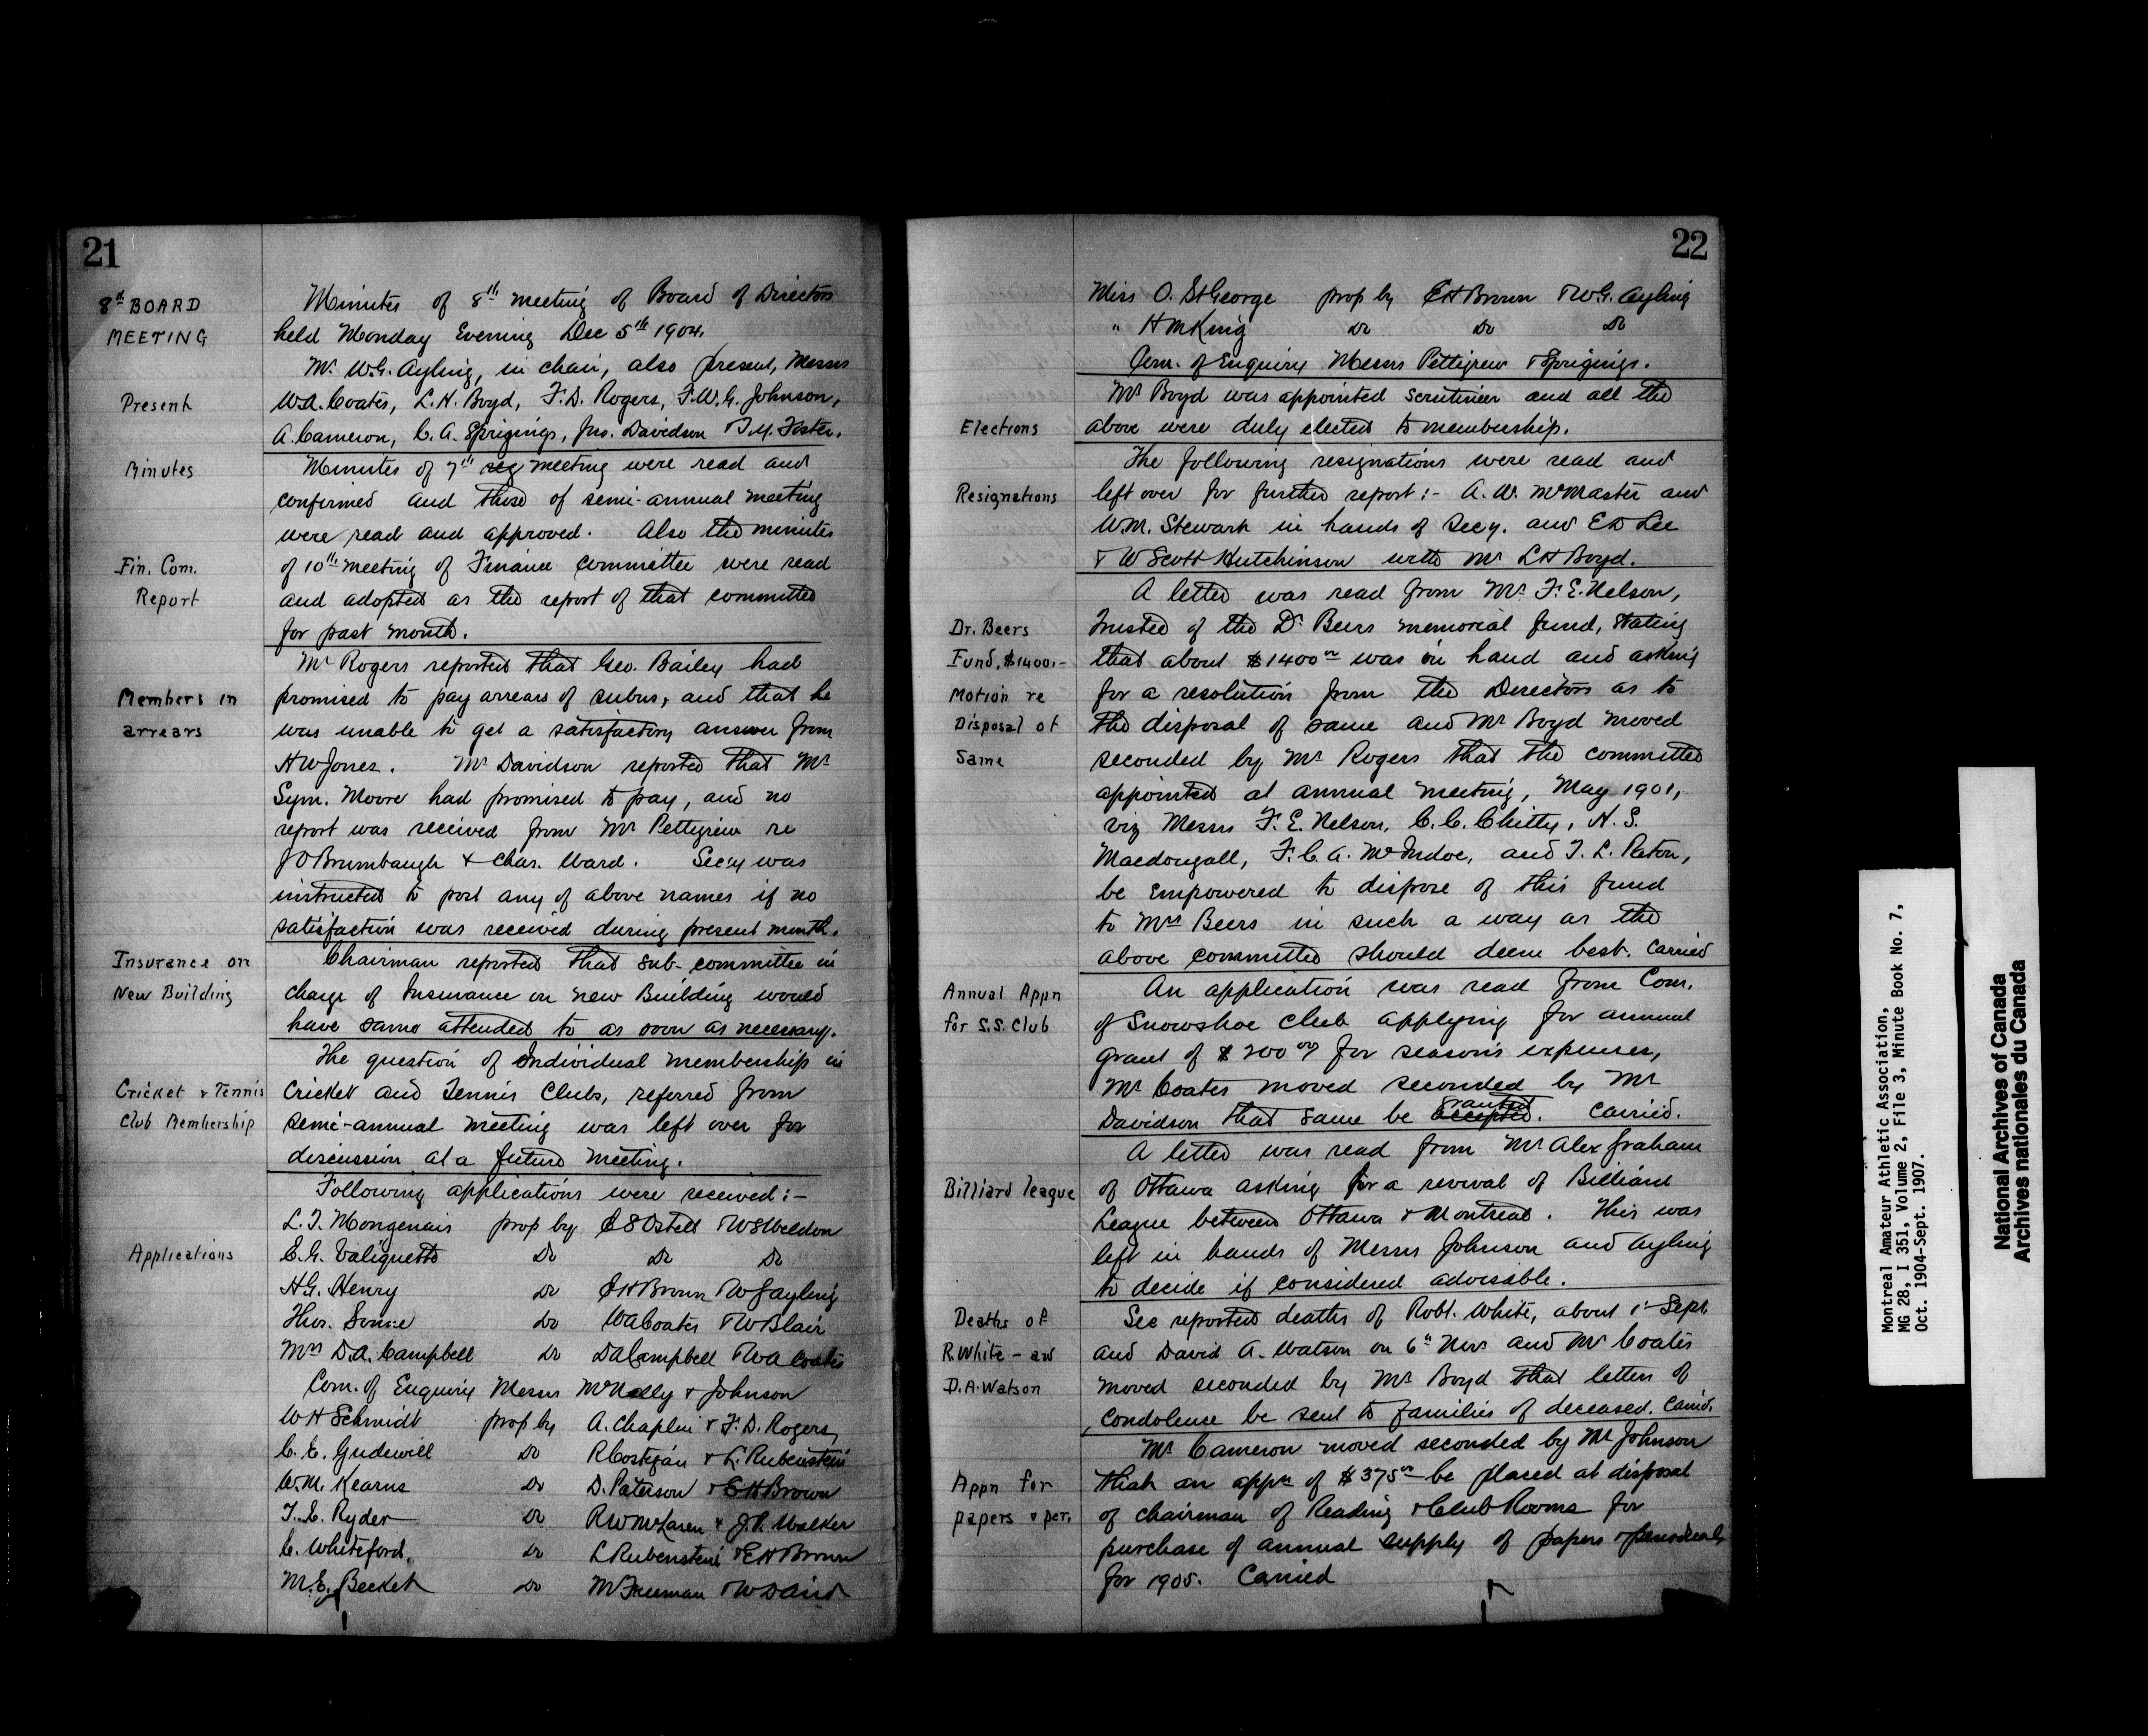 21
8th BOARD
MEETING
Minutes of 8th meeting of Board of Directors
held Monday Evening Dec 5th 1904.
Mr. W.G. Ayling, in chair, also present, Messrs
Present
W.A. Coates, L.H. Boyd, F.D. Rogers, F.W.G. Johnson,
A. Cameron, C.A. Sprigings, Jno. Davidson & J.Y. Foster.
Minutes
Minutes of 7th reg meeting were read and
confirmed and those of semi-annual meeting
were read and approved. Also the minutes
Fin. Com.
of 10th meeting of Finance committee were read
Report
and adopted as the report of that committee
for past month.
Mr Rogers reported that Geo. Bailey had
Members in
promised to pay arrears of subns, and that he
arrears
was unable to get a satisfactory answer from
H W Jones. Mr Davidson reported that Mr
Sym. Moore had promised to pay, and no
report was received from Mr Pettigrew re
J O Brumbaugh & Chas. Ward. Secy was
instructed to post any of above names if no
satisfaction was received during present month.
Insurance on
Chairman reported that sub-committee in
New Building
charge of Insurance on new Building would
have same attended to as soon as necessary.
The question of Individual membership in
Cricket & Tennis
Cricket and Tennis Clubs, referred from
Club Membership
semi-annual meeting was left over for
discussion at a future meeting.
Following applications were received:-
L.J. Mongenais prop by C S Ostell & W S Weldon
Applications
E.G. Valiquette Do Do Do
H G. Henry Do E H Brown & W G Ayling
Thos. Do W A Coates & W Blair
Mrs D.A. Campbell Do D A Campbell & W A Coates
Com. of Enquiry Messrs McNally & Johnson
W H Schmidt prop by A. Chaplin & F.D. Rogers
C.E. Gudewill Do R Costigan & L. Rubenstein
W.M. Kearns Do D. Paterson & E H Brown
T.E. Ryder Do R W McLaren & J.P. Walker
C. Whiteford Do L Rubenstein & E H Brown
M.E. Becket Do M Freeman & W
22
Miss O. St George prop by E H Brown & W.G. Ayling
" H M King Do Do Do
Com. of Enquiry Messrs Pettigrew & Sprigings.
Mr Boyd was appointed scrutineer and all the
Elections
above were duly elected to membership.
The following resignations were read and
Resignations
left over for further report:- A.W. McMaster and
W.M. Stewart in hands of Secy. and E D Lee
& W Scott Hutchinson with Mr L H Boyd.
A letter was read from Mr. F.E. Nelson,
Dr. Beers
Trustee of the Dr Beers memorial fund, stating
Fund, $1400.-
that about $1400 00 was in hand and asking
Motion re
for a resolution from the Directors as to
Disposal of
the disposal of same and Mr Boyd moved
Same
seconded by Mr Rogers that the committee
appointed at annual meeting, May 1901,
viz Messrs F.E. Nelson, C.C. Chitty, H.S.
Macdougall, F.C.A. McIndoe, and T.L. Paton,
be empowered to dispose of this fund
to Mrs Beers in such a way as the
above committee should deem best. Carried
Annual Appn
An application was read from Com.
for S.S. Club
of Snowshoe Club applying for annual
grant of $200 00 for season's expenses,
Mr Coates moved seconded by Mr
Davidson that same be accepted granted. Carried.
A letter was read from Mr Alex Graham
Billiard league
of Ottawa asking for a revival of Billiard
League between Ottawa & Montreal. This was
left in hands of Messrs Johnson and Ayling
to decide if considered advisable.
Deaths of
Sec reported deaths of Robt. White, about 1st Sept.
R. White - and
and David A. Watson on 6th Nov and Mr Coates
D.A. Watson
moved seconded by Mr Boyd that letters of
condolence be sent to families of deceased. Carrid.
Mr Cameron moved seconded by Mr Johnson
Appn for
that an appn of $375 00 be placed at disposal
papers & per.
of chairman of Reading & Club Rooms for
purchase of annual supply of papers & periodicals
for 1905. Carried
Montreal Amateur Athletic Association,
MG 28, I 351, Volume 2, File 3, Minute Book No. 7,
Oct. 1904-Sept. 1907.
National Archives of Canada
Archives nationales du Canada